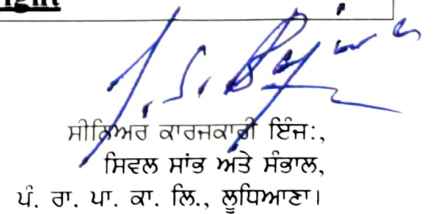 ਸੀਨਿਅਰ ਕਾਰਜਕਾਰੀ ਇੰਜ:,
ਸਿਵਲ ਸਾਂਭ ਅਤੇ ਸੰਭਾਲ,
ਪੰ. ਰਾ. ਪਾ. ਕਾ. ਲਿ., ਲੁਧਿਆਣਾ।